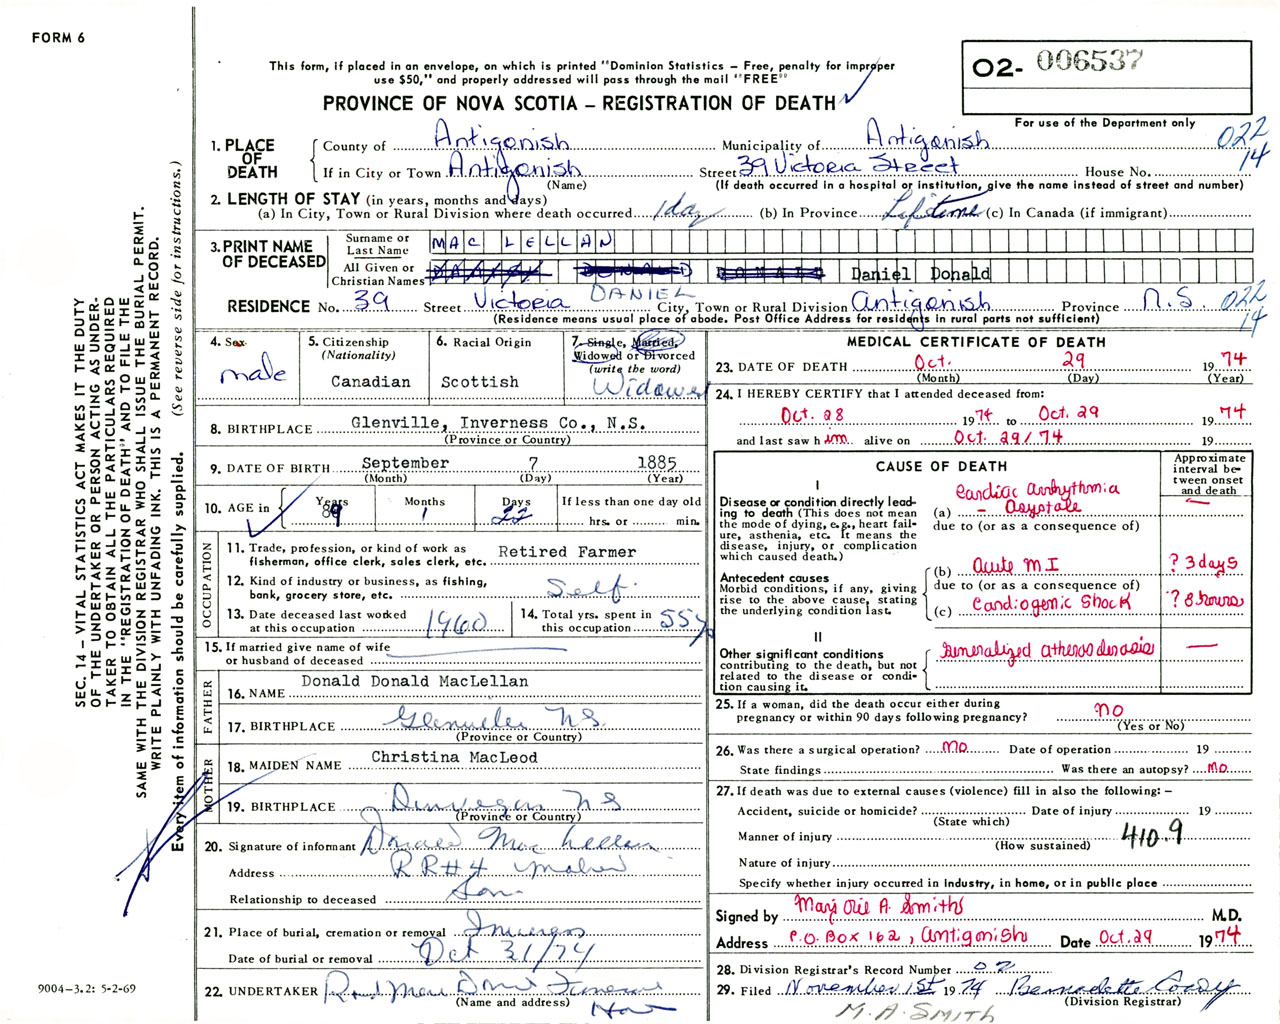 FORM 6
This form, if placed in an envelope, on which is printed "Dominion Statistics – Free, penalty for improper
use $50," and properly addressed will pass through the mail "FREE"
PROVINCE OF NOVA SCOTIA – REGISTRATION OF DEATH
02- 006537
For use of the Department only
022
14
1. PLACE OF DEATH
County of Antigonish Municipality of Antigonish
If in City or Town Antigonish Street 39 Victoria Street House No.
(Name) (If death occurred in a hospital or institution, give the name instead of street and number)
2. LENGTH OF STAY (in years, months and days)
(a) In City, Town or Rural Division where death occurred 1 day (b) In Province Lifetime (c) In Canada (if immigrant)
3. PRINT NAME OF DECEASED
Surname or Last Name MAC LELLAN
All Given or Christian Names DONALD Daniel Donald
DANIEL
RESIDENCE No. 39 Street Victoria City, Town or Rural Division Antigonish Province N.S. 022
14
(Residence means usual place of abode. Post Office Address for residents in rural parts not sufficient)
4. Sex male
5. Citizenship (Nationality) Canadian
6. Racial Origin Scottish
7. Single, Married, Widowed or Divorced (write the word) Widower
8. BIRTHPLACE Glenville, Inverness Co., N.S.
(Province or Country)
9. DATE OF BIRTH September 7 1885
(Month) (Day) (Year)
10. AGE in Years 89 Months 1 Days 22 If less than one day old
hrs. or min.
OCCUPATION
11. Trade, profession, or kind of work as fisherman, office clerk, sales clerk, etc. Retired Farmer
12. Kind of industry or business, as fishing, bank, grocery store, etc. Self
13. Date deceased last worked at this occupation 1960
14. Total yrs. spent in this occupation 55 y
15. If married give name of wife
or husband of deceased
FATHER
16. NAME Donald Donald MacLellan
17. BIRTHPLACE Glenville NS.
(Province or Country)
MOTHER
18. MAIDEN NAME Christina MacLeod
19. BIRTHPLACE Dunvegan NS
(Province or Country)
20. Signature of informant Donald MacLellan
Address RR#4
Relationship to deceased Son
21. Place of burial, cremation or removal Inverness
Date of burial or removal Oct 31/74
22. UNDERTAKER
(Name and address)
MEDICAL CERTIFICATE OF DEATH
23. DATE OF DEATH Oct. 29 1974
(Month) (Day) (Year)
24. I HEREBY CERTIFY that I attended deceased from:
Oct. 28 1974 to Oct. 29 1974
and last saw him alive on Oct. 29/74 19
CAUSE OF DEATH
Approximate interval between onset and death
I
Disease or condition directly leading to death (This does not mean the mode of dying, e.g., heart failure, asthenia, etc. It means the disease, injury, or complication which caused death.)
(a) Cardiac arrhythmia – Asystole —
due to (or as a consequence of)
Antecedent causes
Morbid conditions, if any, giving rise to the above cause, stating the underlying condition last.
(b) Acute M I ? 3 days
due to (or as a consequence of)
(c) Cardiogenic Shock ? 8 hours
II
Other significant conditions
contributing to the death, but not related to the disease or condition causing it.
Generalized atherosclerosis —
25. If a woman, did the death occur either during pregnancy or within 90 days following pregnancy? no
(Yes or No)
26. Was there a surgical operation? no Date of operation 19
State findings Was there an autopsy? no
27. If death was due to external causes (violence) fill in also the following: –
Accident, suicide or homicide? Date of injury 19
(State which)
Manner of injury 410.9
(How sustained)
Nature of injury
Specify whether injury occurred in Industry, in home, or in public place
Signed by Marjorie A. Smith M.D.
Address P.O. Box 162, Antigonish Date Oct. 29 1974
28. Division Registrar's Record Number 02
29. Filed November 1st 1974 Bernadette Coady
(Division Registrar)
M.A. SMITH
SEC. 14 – VITAL STATISTICS ACT MAKES IT THE DUTY
OF THE UNDERTAKER OR PERSON ACTING AS UNDER-
TAKER TO OBTAIN ALL THE PARTICULARS REQUIRED
IN THE "REGISTRATION OF DEATH" AND TO FILE THE
SAME WITH THE DIVISION REGISTRAR WHO SHALL ISSUE THE BURIAL PERMIT.
WRITE PLAINLY WITH UNFADING INK. THIS IS A PERMANENT RECORD.
Every item of information should be carefully supplied. (See reverse side for instructions.)
9004–3.2: 5-2-69